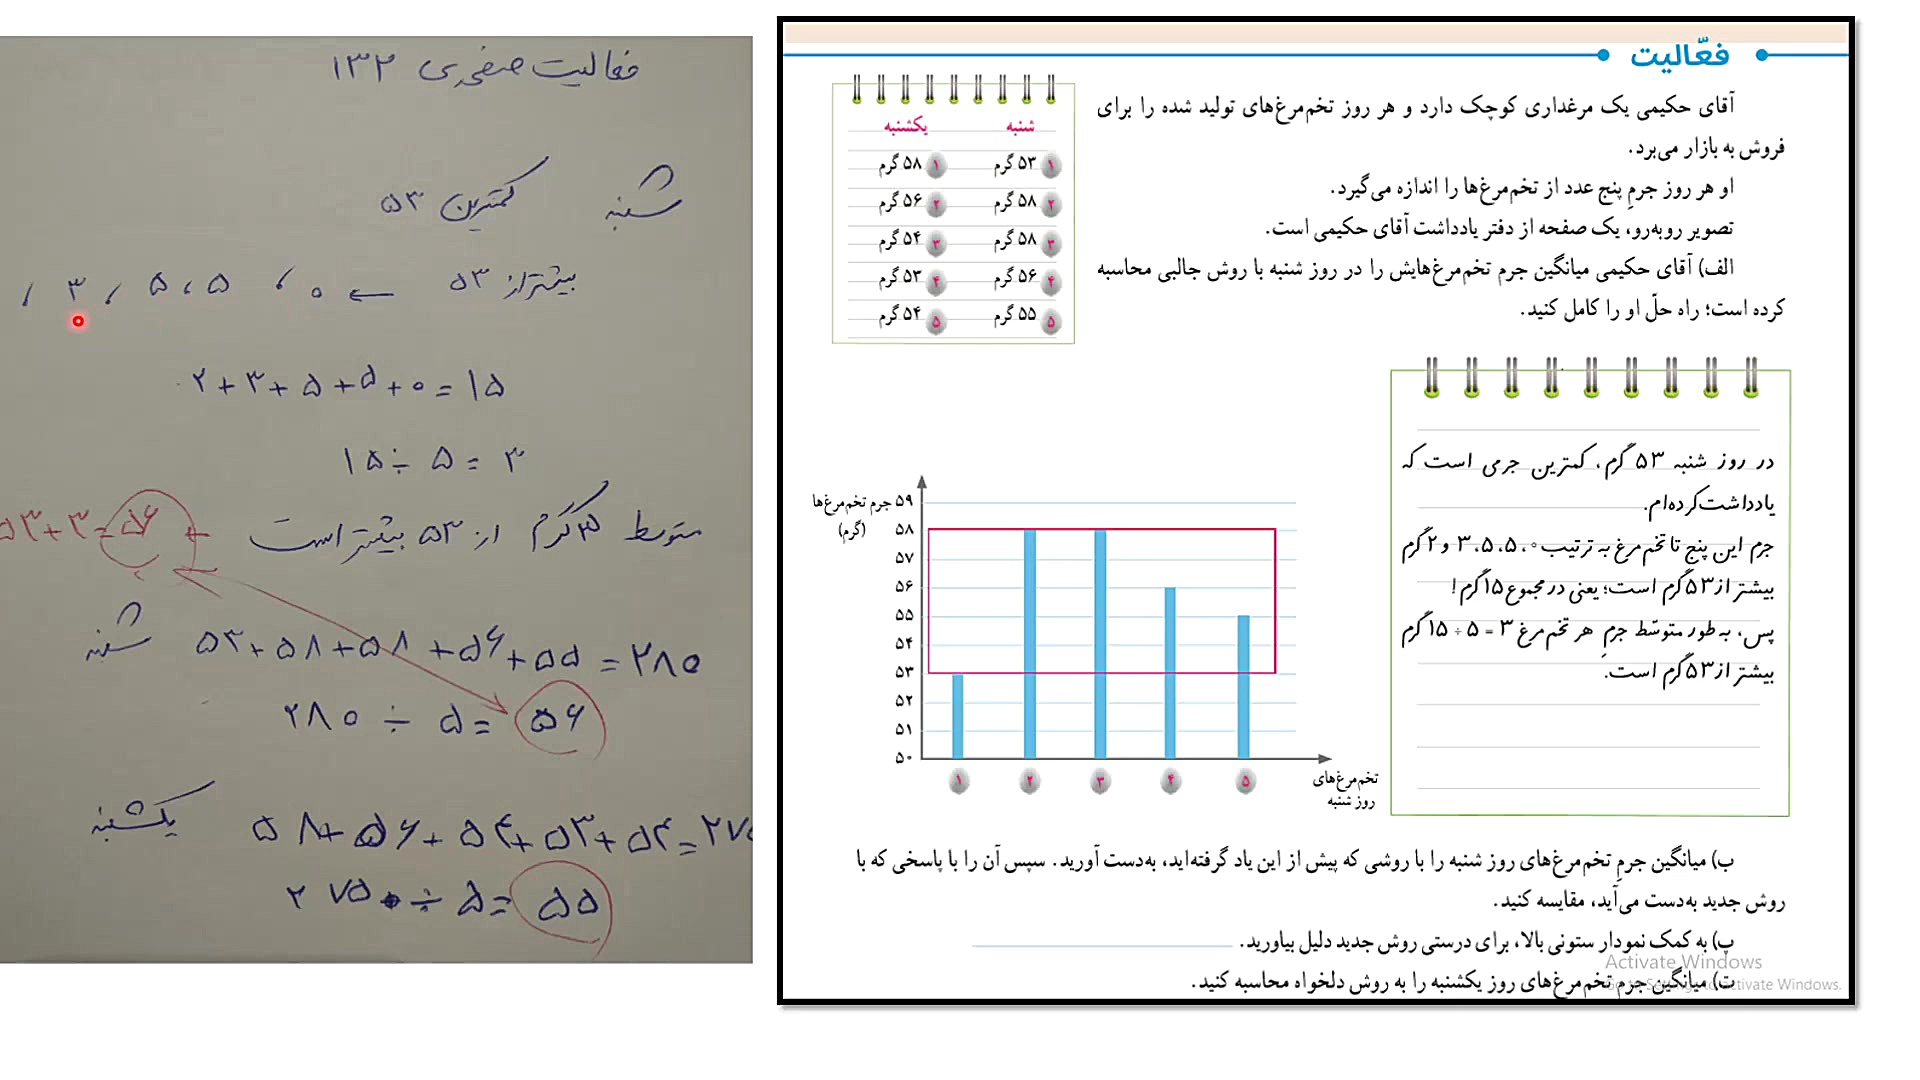 فعالیت صفحه‌ی ۱۳۲
شنبه کمترین ۵۳
بیشتر از ۵۳ ← ۰ ، ۵ ، ۵ ، ۳ ،
۲+۳+۵+۵+۰=۱۵
۱۵÷۵=۳
متوسط ۳ گرم از ۵۳ بیشتر است
۵۳+۳=۵۶
شنبه ۵۳+۵۸+۵۸+۵۶+۵۵=۲۸۰
۲۸۰÷۵=۵۶
یکشنبه ۵۸+۵۶+۵۴+۵۳+۵۴=۲۷۵
۲۷۵÷۵=۵۵
فعّالیت
آقای حکیمی یک مرغداری کوچک دارد و هر روز تخم‌مرغ‌های تولید شده را برای
فروش به بازار می‌برد.
او هر روز جرمِ پنج عدد از تخم‌مرغ‌ها را اندازه می‌گیرد.
تصویر روبه‌رو، یک صفحه از دفتر یادداشت آقای حکیمی است.
الف) آقای حکیمی میانگین جرم تخم‌مرغ‌هایش را در روز شنبه با روش جالبی محاسبه
کرده است؛ راه حلّ او را کامل کنید.
شنبه یکشنبه
۱ ۵۳ گرم ۱ ۵۸ گرم
۲ ۵۸ گرم ۲ ۵۶ گرم
۳ ۵۸ گرم ۳ ۵۴ گرم
۴ ۵۶ گرم ۴ ۵۳ گرم
۵ ۵۵ گرم ۵ ۵۴ گرم
در روز شنبه ۵۳ گرم، کمترین جرمی است که
یادداشت کرده‌ام.
جرم این پنج تا تخم مرغ به ترتیب ۰، ۵، ۵، ۳ و ۲ گرم
بیشتر از ۵۳ گرم است؛ یعنی در مجموع ۱۵ گرم!
پس، به طور متوسّط جرمِ هر تخم مرغ ۳ = ۵ ÷ ۱۵ گرم
بیشتر از ۵۳ گرم است.
جرم تخم‌مرغ‌ها
(گرم)
۵۹
۵۸
۵۷
۵۶
۵۵
۵۴
۵۳
۵۲
۵۱
۵۰
۱ ۲ ۳ ۴ ۵
تخم‌مرغ‌های
روز شنبه
ب) میانگین جرمِ تخم‌مرغ‌های روز شنبه را با روشی که پیش از این یاد گرفته‌اید، به‌دست آورید. سپس آن را با پاسخی که با
روش جدید به‌دست می‌آید، مقایسه کنید.
پ) به کمک نمودار ستونی بالا، برای درستی روش جدید دلیل بیاورید.
ت) میانگین جرم تخم‌مرغ‌های روز یکشنبه را به روش دلخواه محاسبه کنید.
Activate Windows
Go to Settings to activate Windows.